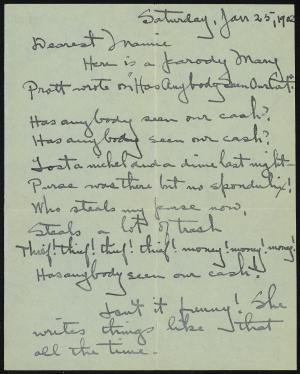 Saturday, Jan 25, 1902
Dearest Mamie
Here is a parody Mary
Pratt wrote on "Has Anybody Seen Our Cat":
Has anybody seen our cash?
Has anybody seen our cash?
Lost a nickel and a dime last night
Purse was there but no spondulix!
Who steals my purse now,
Steals a lot of trash
Thief! thief! thief! thief! money! money! money!
Has anybody seen our cash!
Isn't it funny! She
writes things like that
all the time.